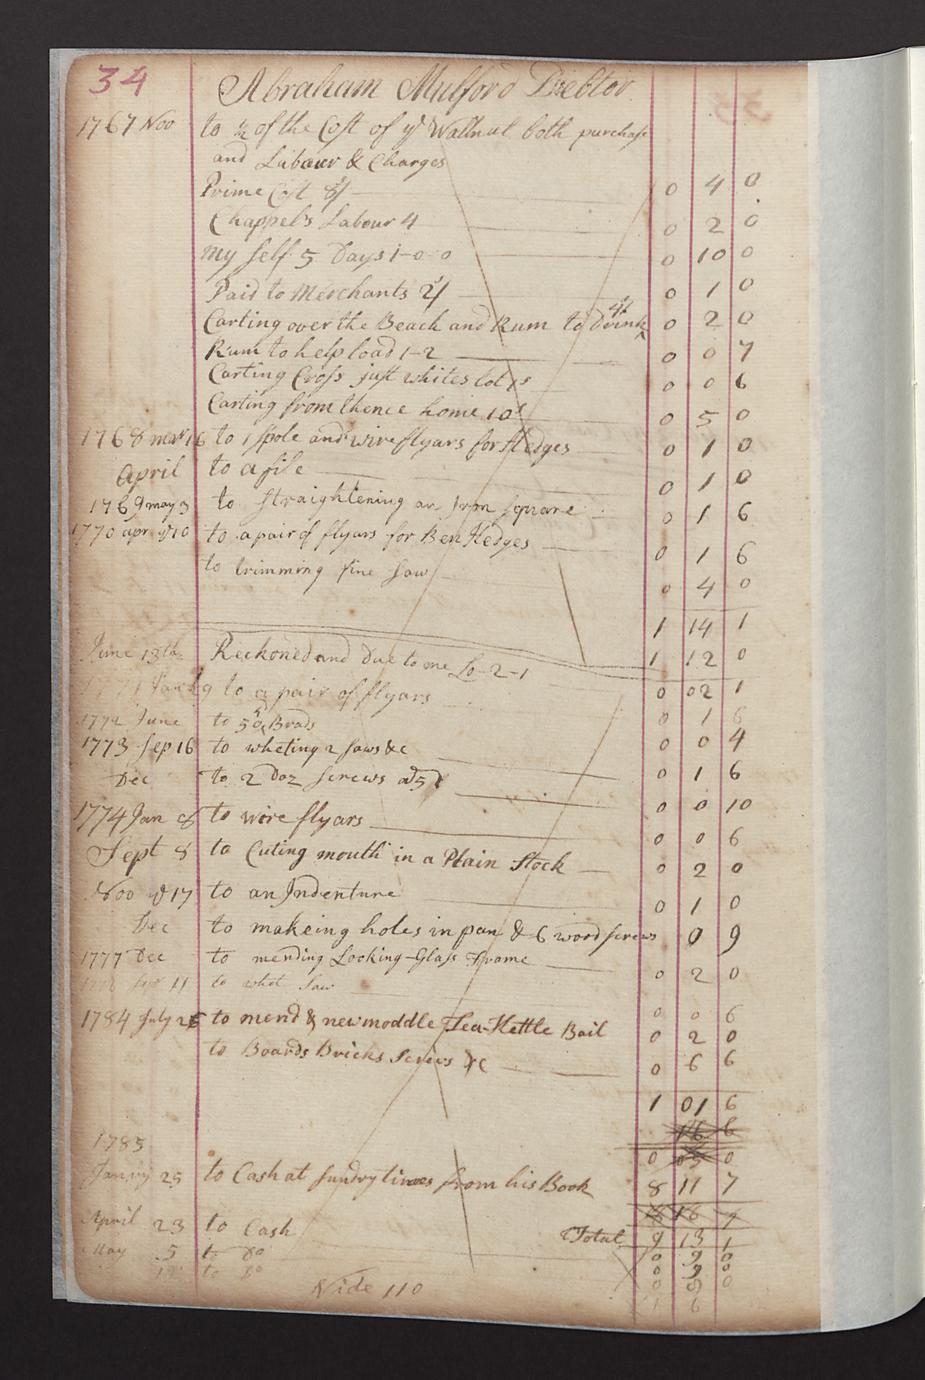 34 Abraham Mulford Debtor
1767 Nov to ½ of the Cost of ye Wallnut both purchase
and Labour & Charges
Prime Cost 8/ 0 4 0
Chappel's Labour 4 0 2 0
my self 5 Days 1-0-0 0 10 0
Paid to Merchants 2/ 0 1 0
Carting over the Beach and Rum to drink 4/ 0 2 0
Rum to help load 1-2 0 0 7
Carting Cross just whites lot 1s 0 0 6
Carting from thence home 10s 0 5 0
1768 mar 16 to 1 spole and wire flyars for Hedges 0 1 0
April to a file 0 1 0
1769 may 3 to straightening an Iron square 0 1 6
1770 apr 10 to a pair of flyars for Ben Hedges 0 1 6
to trimming fine saw 0 4 0
1 14 1
June 13th Reckoned and Due to me £0-2-1 1 12 0
1771 Jan 9 to a pair of flyars 0 02 1
1772 June to 50 Brads 0 1 6
1773 Sep 16 to wheting 2 saws &c 0 0 4
Dec to 2 Doz screws at 5d 0 1 6
1774 Jan 8 to wire flyars 0 0 10
Sept 8 to Cuting mouth in a Plain Stock 0 0 6
Nov 17 to an Indenture 0 2 0
Dec to makeing holes in pan & 6 wood screws 0 1 0
1777 Dec to mending Looking-Glass Frame 0 9
11 to whet saw 0 2 0
1784 July 26 to mend & newmoddle Tea-Kettle Bail 0 0 6
0 2 0
to Boards Bricks Screws &c 0 6 6
1 01 6
16 6
1785 0 05 0
Janry 25 to Cash at sundry times from his Book 8 11 7
18 16 7
April 23 to Cash Total 9 13 1
May 5 to do 0 9 0
12 to do 0 9 0
Vide 110 0 9 0
1 6